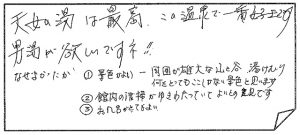 天女の湯は最高、この温泉で一番好きです
男湯が欲しいですネ!!
なぜよかったか ① 景色がよい ー 周囲が雄大な山と谷 湯けむり
何をとってもここしかない景色と思います
② 館内の清掃がゆきわたっていてよいとの意見です
③ お風呂がとてもよい